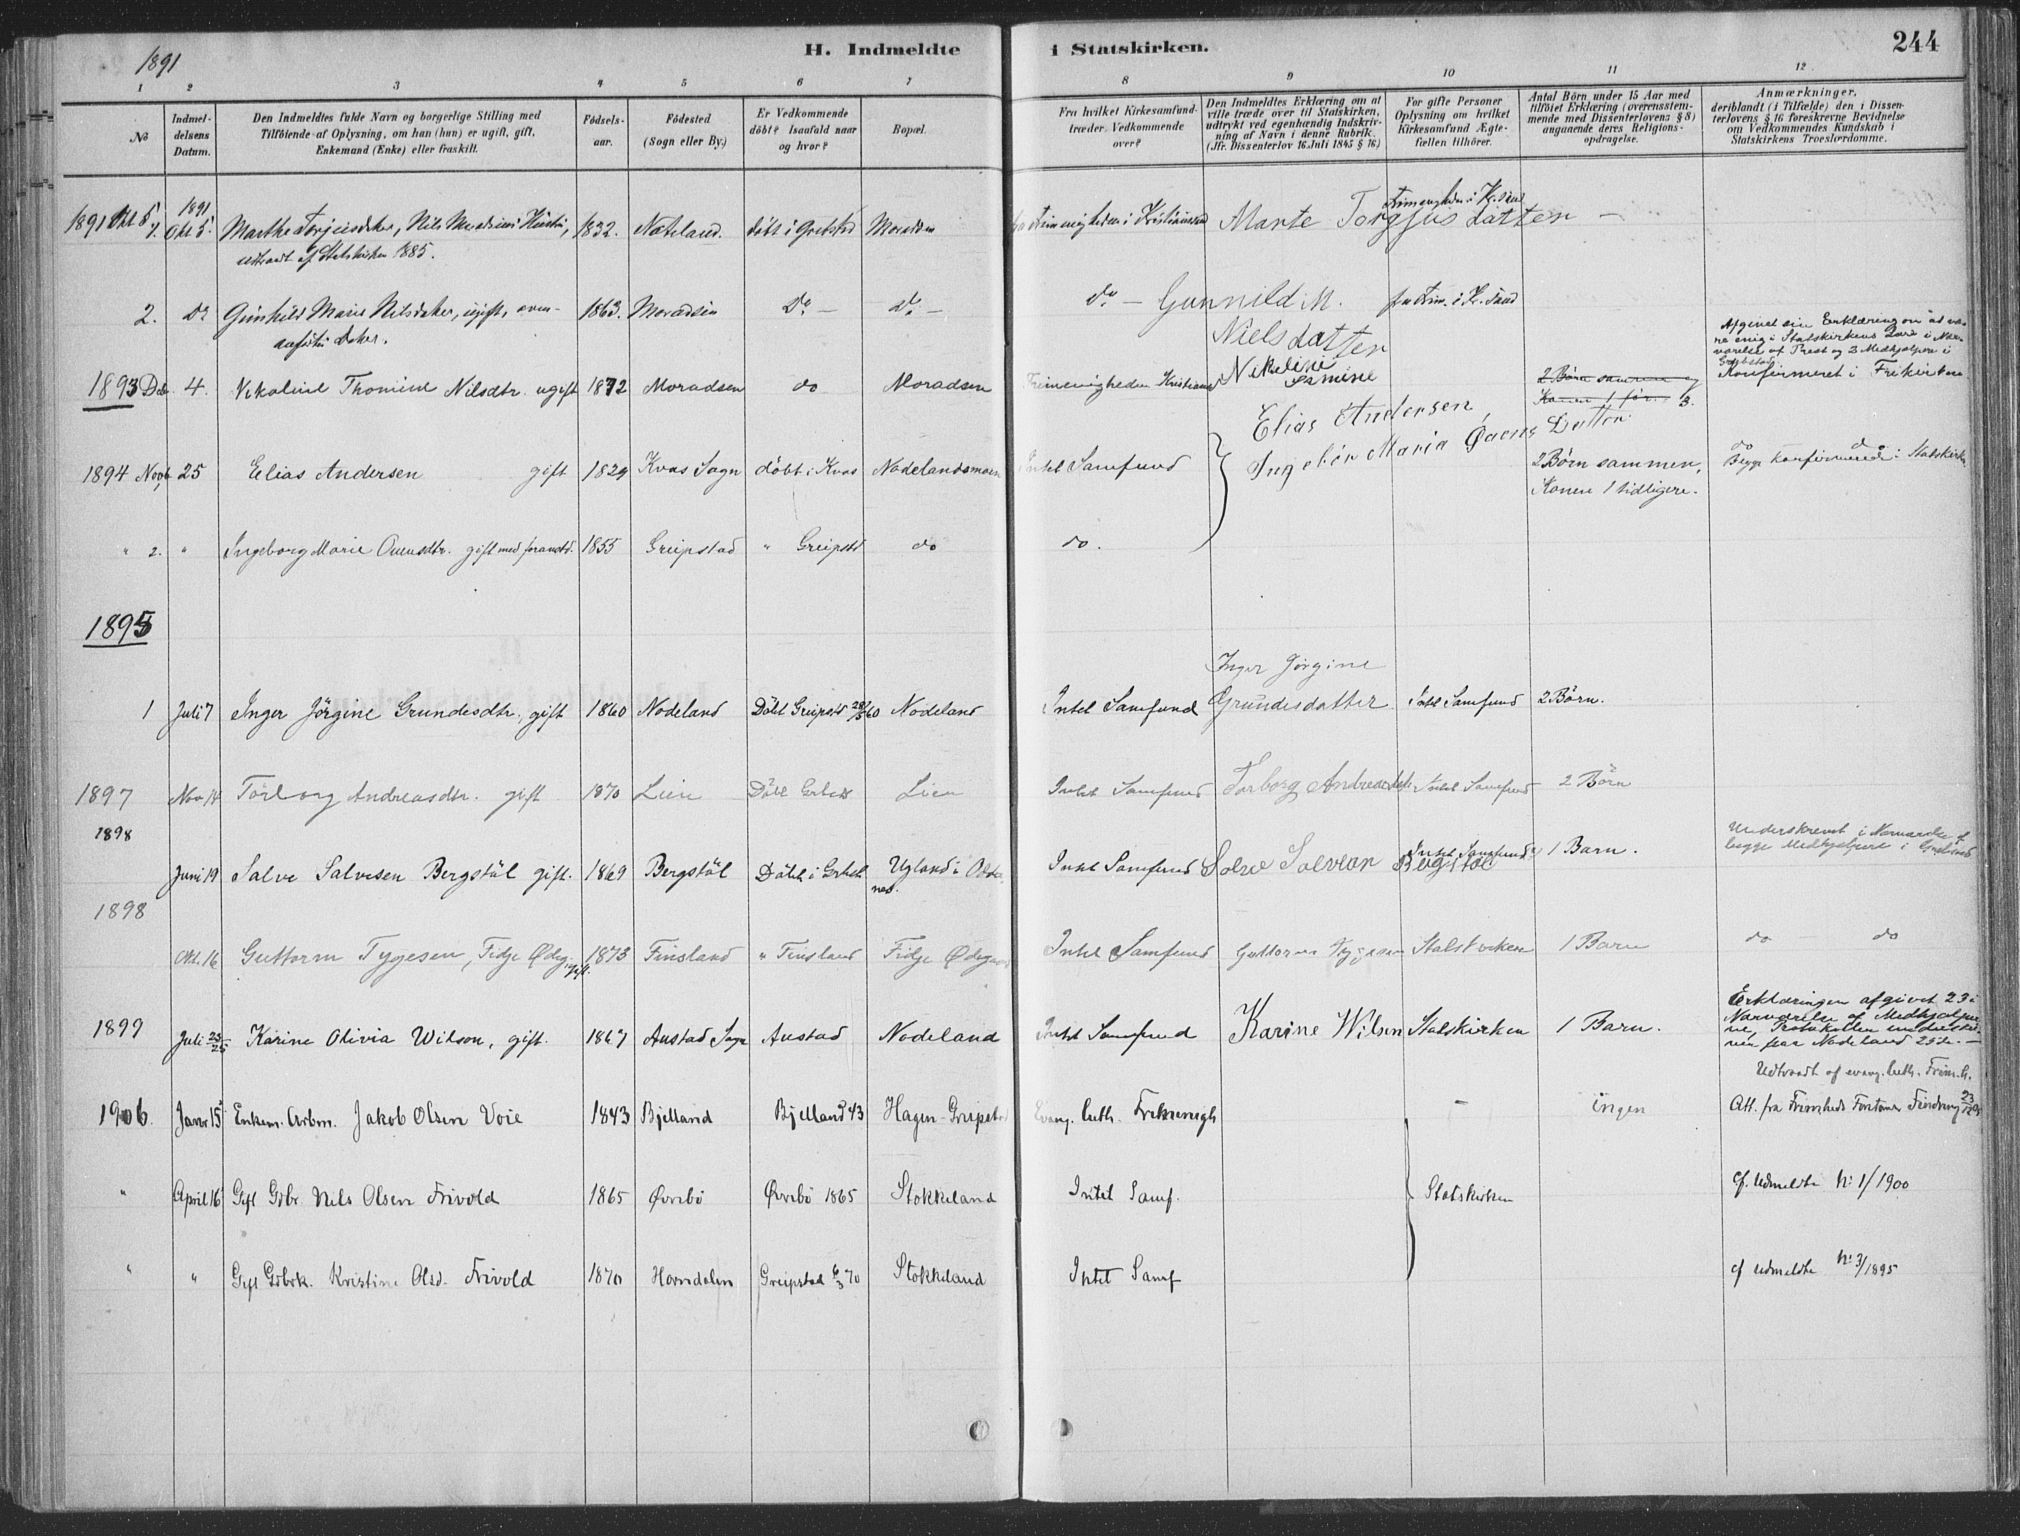 1891
H. Indmeldte i Statskirken.
244
1 2 3 4 5 6 7 8 9 10 11 12
No
Indmel-
delsens
Datum.
Den Indmeldtes fulde Navn og borgerlige Stilling med
Tilföiende af Oplysning, om han (hun) er ugift, gift,
Enkemand (Enke) eller fraskilt.
Födsels-
aar.
Födested
(Sogn eller By.)
Er Vedkommende
döbt? Isaafald naar
og hvor?
Bopæl.
Fra hvilket Kirkesamfund
træder Vedkommende
over?
Den Indmeldtes Erklæring om at
ville træde over til Statskirken,
udtrykt ved egenhændig Indskriv-
ning af Navn i denne Rubrik.
(Jfr. Dissenterlov 16 Juli 1845 § 16)
For gifte Personer
Oplysning om hvilket
Kirkesamfund Ægte-
fællen tilhörer.
Antal Börn under 15 Aar med
tilföiet Erklæring (overensstem-
mende med Dissenterlovens § 8)
angaaende deres Religions-
opdragelse.
Anmærkninger,
deriblandt (i Tilfælde) den i Dissen-
terlovens § 16 foreskrevne Bevidnelse
om Vedkommendes Kundskab i
Statskirkens Troeslærdomme.
1891 Okt 5 1. 1891 Okt 5. Marthe Torjeisdtter, Nils Moradsens Hustru, 1832. Nateland. döbt i Grebstad Moradsen
udtraadt af Statskirken 1885.
fra Frimenigheden i Kristianssand Marte Torgjus datten Frimenigheden i Kr.sand
2. Do Gunhild Marie Nilsdatter, ugift, oven- 1863. Moradsen Do — Do —
anførtes datter.
do — Gunnild M. fra Frim. i Kr.sand
Nielsdatter
Afgivet sin Erklæring om at væ-
re enig i Statskirkens Lære i Nær-
værelse af Prest og 2 Medhjælpere i
Grebstad
Konfirmeret i Frikirken
1893 Deb. 4. Nikoline Thomine Nilsdtr. ugift 1872 Moradsen do Moradsen
Frimenigheden Kristians Nikoline
2 Börn sammen og
Konen 1 før.
1894 Novb 25 Elias Andersen gift 1829 Kvas Sogn döbt i Kvas Nodelandsmoen
Intet Samfund Elias Andersen,
Ingebör Maria Øuens Datter
2 Börn sammen,
Konen 1 tidligere.
do do
Begge konfirmerede i Statskirk
" 2. " Ingeborg Marie Ouensdtr. gift med foranstd. 1855 Greipstad " Greipstd do
do.
1895
1 Juli 7 Inger Jörgine Grundesdtr, gift 1860 Nodeland Döbt Greipstd 28/5 60 Nodeland
Intet Samfund Inger Jørgine
Grundesdatter Intet Samfund 2 Börn.
1897 Nov 14 Torborg Andreasdtr. gift 1870 Lien Döbt Lien
Intet Samfund Torborg Andreasdtr Intet Samfund 2 Börn
1898
Juni 19 Salve Salvesen Bergstöl gift. 1869 Bergstöl Döbt i Ugland i Odder
nes.
Intet Samfund Bergstöl Intet Samfund 1 Barn.
Underskrevet i Nærværelse af
begge Medhjælpere i
1898
Okt. 16 Guttorm Tygesen, Fidje Ødeg. gift. 1873 Finsland " Finsland Fidje Ødegaard
Intet Samfund Guttorm Tygesen Statskirken 1 Barn do do
1899
Juli 23/25 Karine Olivia Wilson, gift. 1867 Austad Sogn Austad Nodeland
Intet Samfund Karine Wilsen Statskirken 1 Barn.
Erklæringen afgivet 23 i
Nærværelse af Medhjælper-
ne, Protokollen underskre-
ven paa Nodeland 25de. —
Udtraadt af evang. luth. Frim.h.
1906. Januar 15 Enkem. Arbm. Jakob Olsen Voie 1843 Bjelland Bjelland 43 Hagen Greipstad
Evang. luth. Frimenigh — ingen
Att. fra Frimheds Forstander
" April 16 Gift Gbr. Nils Olsen Frivold 1865 Øvrebö Øvrebö 1865 Stokkeland
Intet Samf. Statskirken cf. Udmeldte No 1/1900
" " Gift Gbrk. Kristine Olsd. Frivold 1870 Homdalen Greipstad 6/3 70 Stokkeland
Intet Samf cf Udmeldte No 3/1895